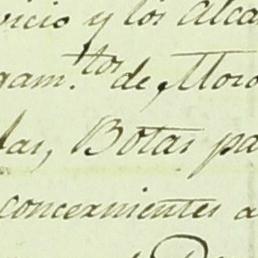 vicio y los Alca
gam.tos de Moro
las, Botas pa
concernientes a